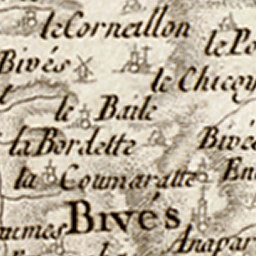 le Corneillon
le Po
Bivés
le Chicoy
le Baile
la Bordette
Bivé
la Coumaratte
En
BIVÉS
umes
Anapar
la